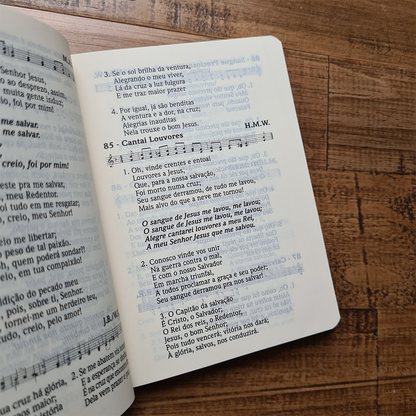 Senhor Jesus,
ao desprezo, assim,
muita gente induz;
foi por mim!
me salvar.
me salvar.
creio, foi por mim!
pra me salvar,
, meu Redentor.
do em me resgatar;
, creio, meu Senhor!
me libertar;
peso de tal paixão.
quem poderá sondar?!
creio, em tua compaixão!
ndição do pecado meu
, pois, sobre ti, Senhor.
tornei-me um herdeiro teu,
udo, creio, pelo amor!
J.B./M.
cruz há glória,
2. Se me abatem
E a esperança se
É na cruz que encontro
Dela vem prazer e
3. Se o sol brilha da ventura,
Alegrando o meu viver,
Lá da cruz a luz fulgura
E me traz maior prazer
4. Por igual, já são benditas
A ventura e a dor, na cruz;
Alegrias inauditas
Nela trouxe o bom Jesus.
85 - Cantai Louvores H.M.W.
1. Oh, vinde crentes e entoai
Louvores a Jesus,
Que, para a nossa salvação,
Foi morto numa cruz;
Seu sangue derramou, de tudo me lavou,
Mais alvo do que a neve me tornou!
O sangue de Jesus me lavou, me lavou;
O sangue de Jesus me lavou, me lavou;
Alegre cantarei louvores a meu Rei,
A meu Senhor Jesus que me salvou.
2. Conosco vinde vos unir
Na guerra contra o mal,
E com o nosso Salvador
Em marcha triunfal,
A todos proclamar a graça e seu poder;
Seu sangue derramou pra nos salvar!
3. O Capitão da salvação
É Cristo, o Salvador;
O Rei dos reis, o Redentor,
Jesus, o bom Senhor;
Pois tudo vencerá; vitória nos dará;
À glória, salvos, nos conduzirá.